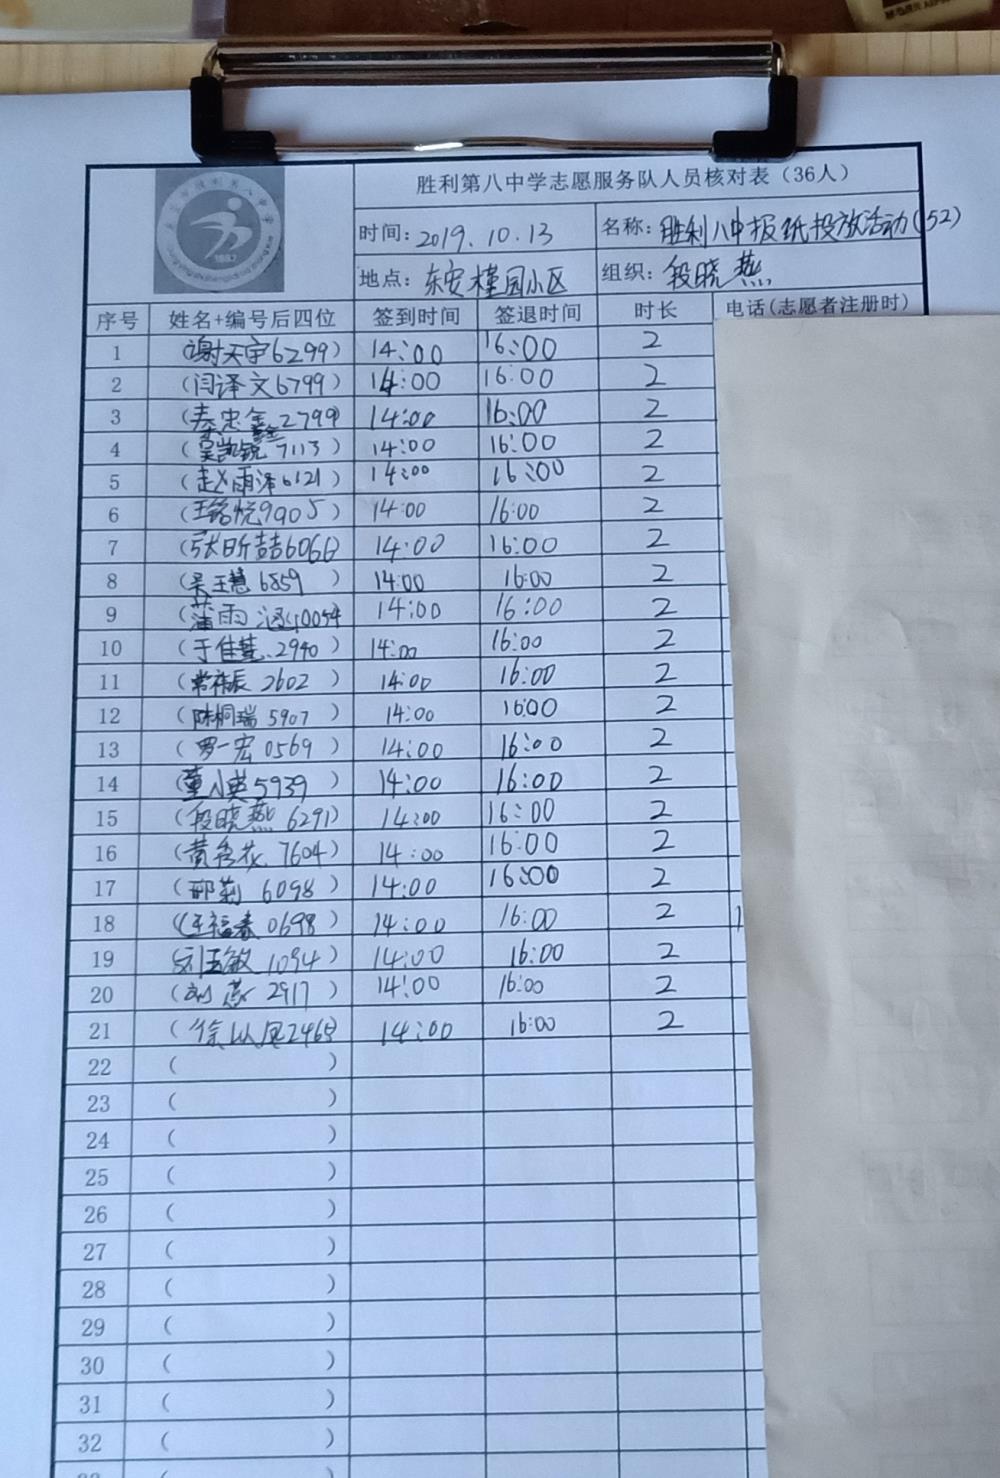 胜利第八中学志愿服务队人员核对表（36人）
时间：2019.10.13 名称：胜利八中报纸投放活动(52)
地点：东安槿园小区 组织：段晓燕
序号 姓名+编号后四位 签到时间 签退时间 时长 电话(志愿者注册时)
1 (谢天宇6299) 14:00 16:00 2
2 (闫译文6799) 14:00 16:00 2
3 (秦忠鑫2799) 14:00 16:00 2
4 (吴凯锐7113) 14:00 16:00 2
5 (赵雨泽6121) 14:00 16:00 2
6 (王铭悦9905) 14:00 16:00 2
7 (张昕喆6066) 14:00 16:00 2
8 (吴玉慧6859) 14:00 16:00 2
9 (蒲雨涵0054 14:00 16:00 2
10 (于佳慧.2940) 14:00 16:00 2
11 (常祎辰2602) 14:00 16:00 2
12 (陈桐瑞5907) 14:00 16:00 2
13 (罗一宏0569) 14:00 16:00 2
14 (董小英5939) 14:00 16:00 2
15 (段晓燕6291) 14:00 16:00 2
16 (黄秀花.7604) 14:00 16:00 2
17 (邢莉6098) 14:00 16:00 2
18 (王福春0698) 14:00 16:00 2
19 (刘玉敏1094) 14:00 16:00 2
20 (刘燕2917) 14:00 16:00 2
21 (徐以凤2465) 14:00 16:00 2
22 ( )
23 ( )
24 ( )
25 ( )
26 ( )
27 ( )
28 ( )
29 ( )
30 ( )
31 ( )
32 ( )